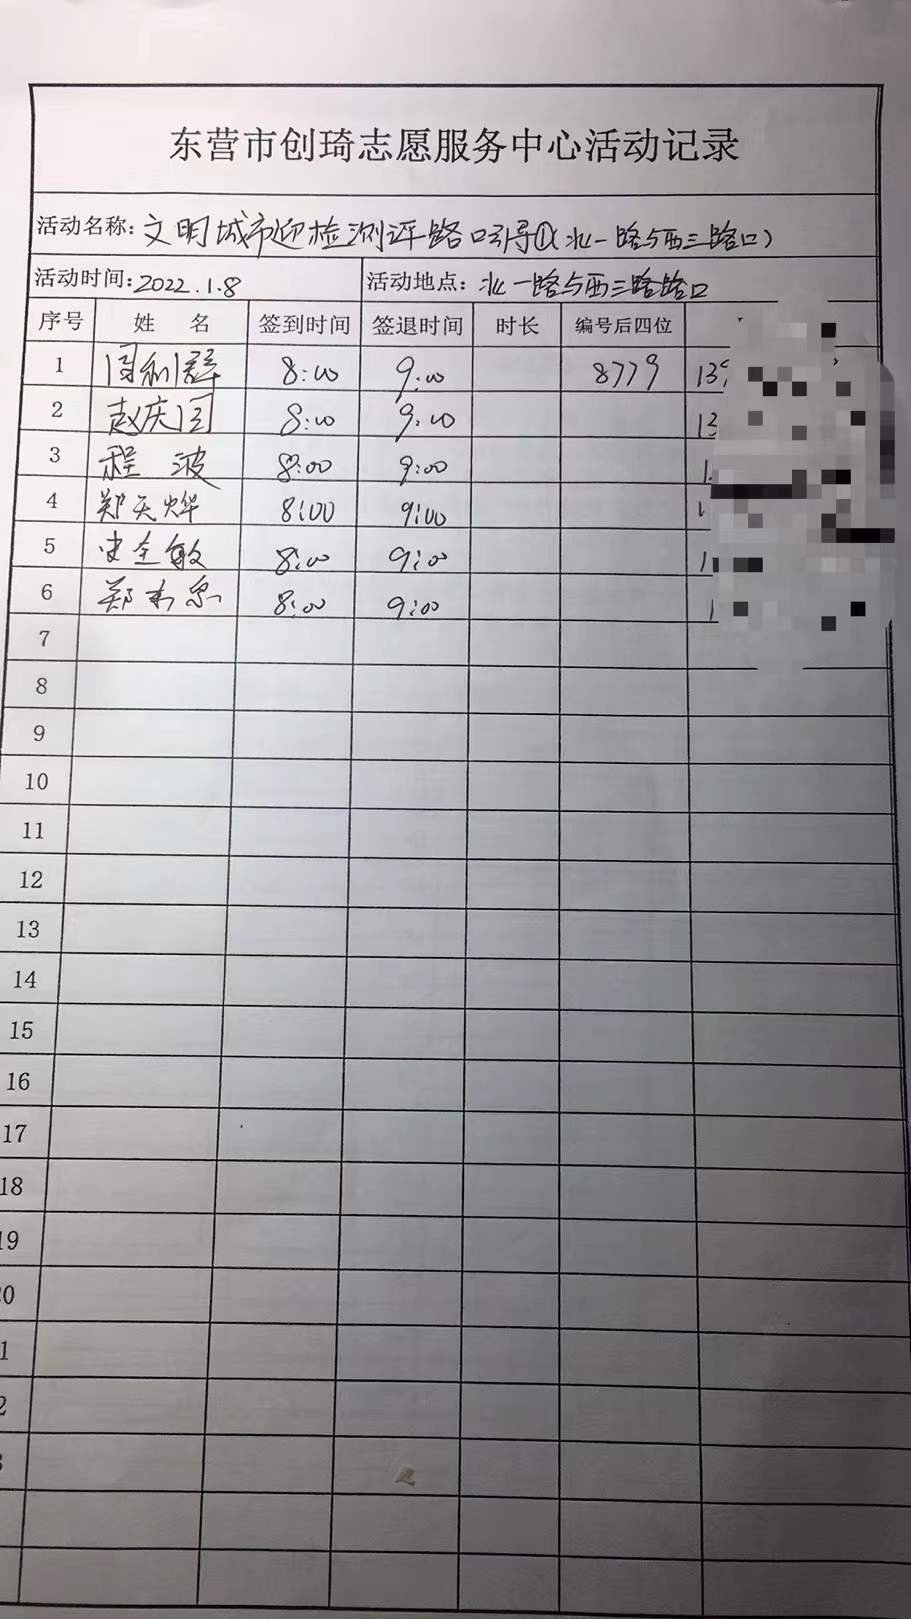 东营市创琦志愿服务中心活动记录
活动名称: 文明城市迎检测评路口引导①(北一路与西三路口)
活动时间: 2022.1.8 活动地点: 北一路与西三路路口
序号 姓 名 签到时间 签退时间 时长 编号后四位
1 周利群 8:00 9:00 8779 139
2 赵庆国 8:00 9:00 13
3 程 波 8:00 9:00 1
4 郑天烨 8:00 9:00 1
5 史全敏 8:00 9:00 1
6 郑 8:00 9:00 1
7
8
9
10
11
12
13
14
15
16
17
18
19
0
1
2
3